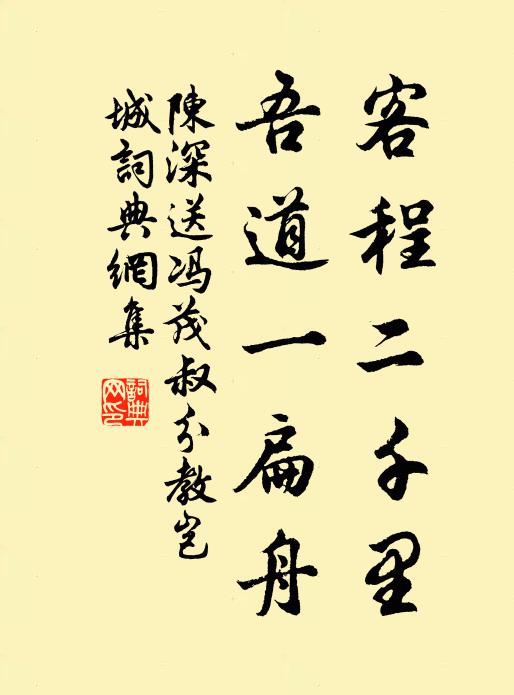 客程二千里
吾道一扁舟
陳深送馮茂叔分教岂
城詞典網集
詞典
网印